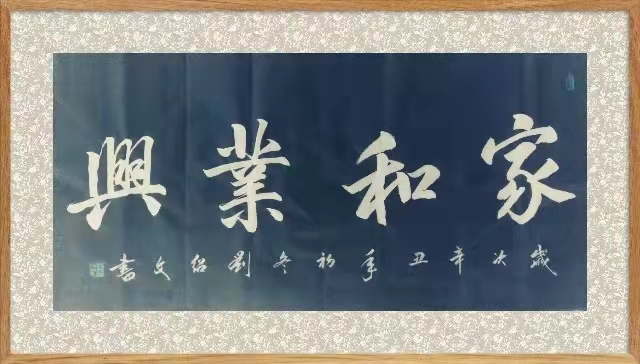 家和業興
歲次辛丑年初冬劉紹文書